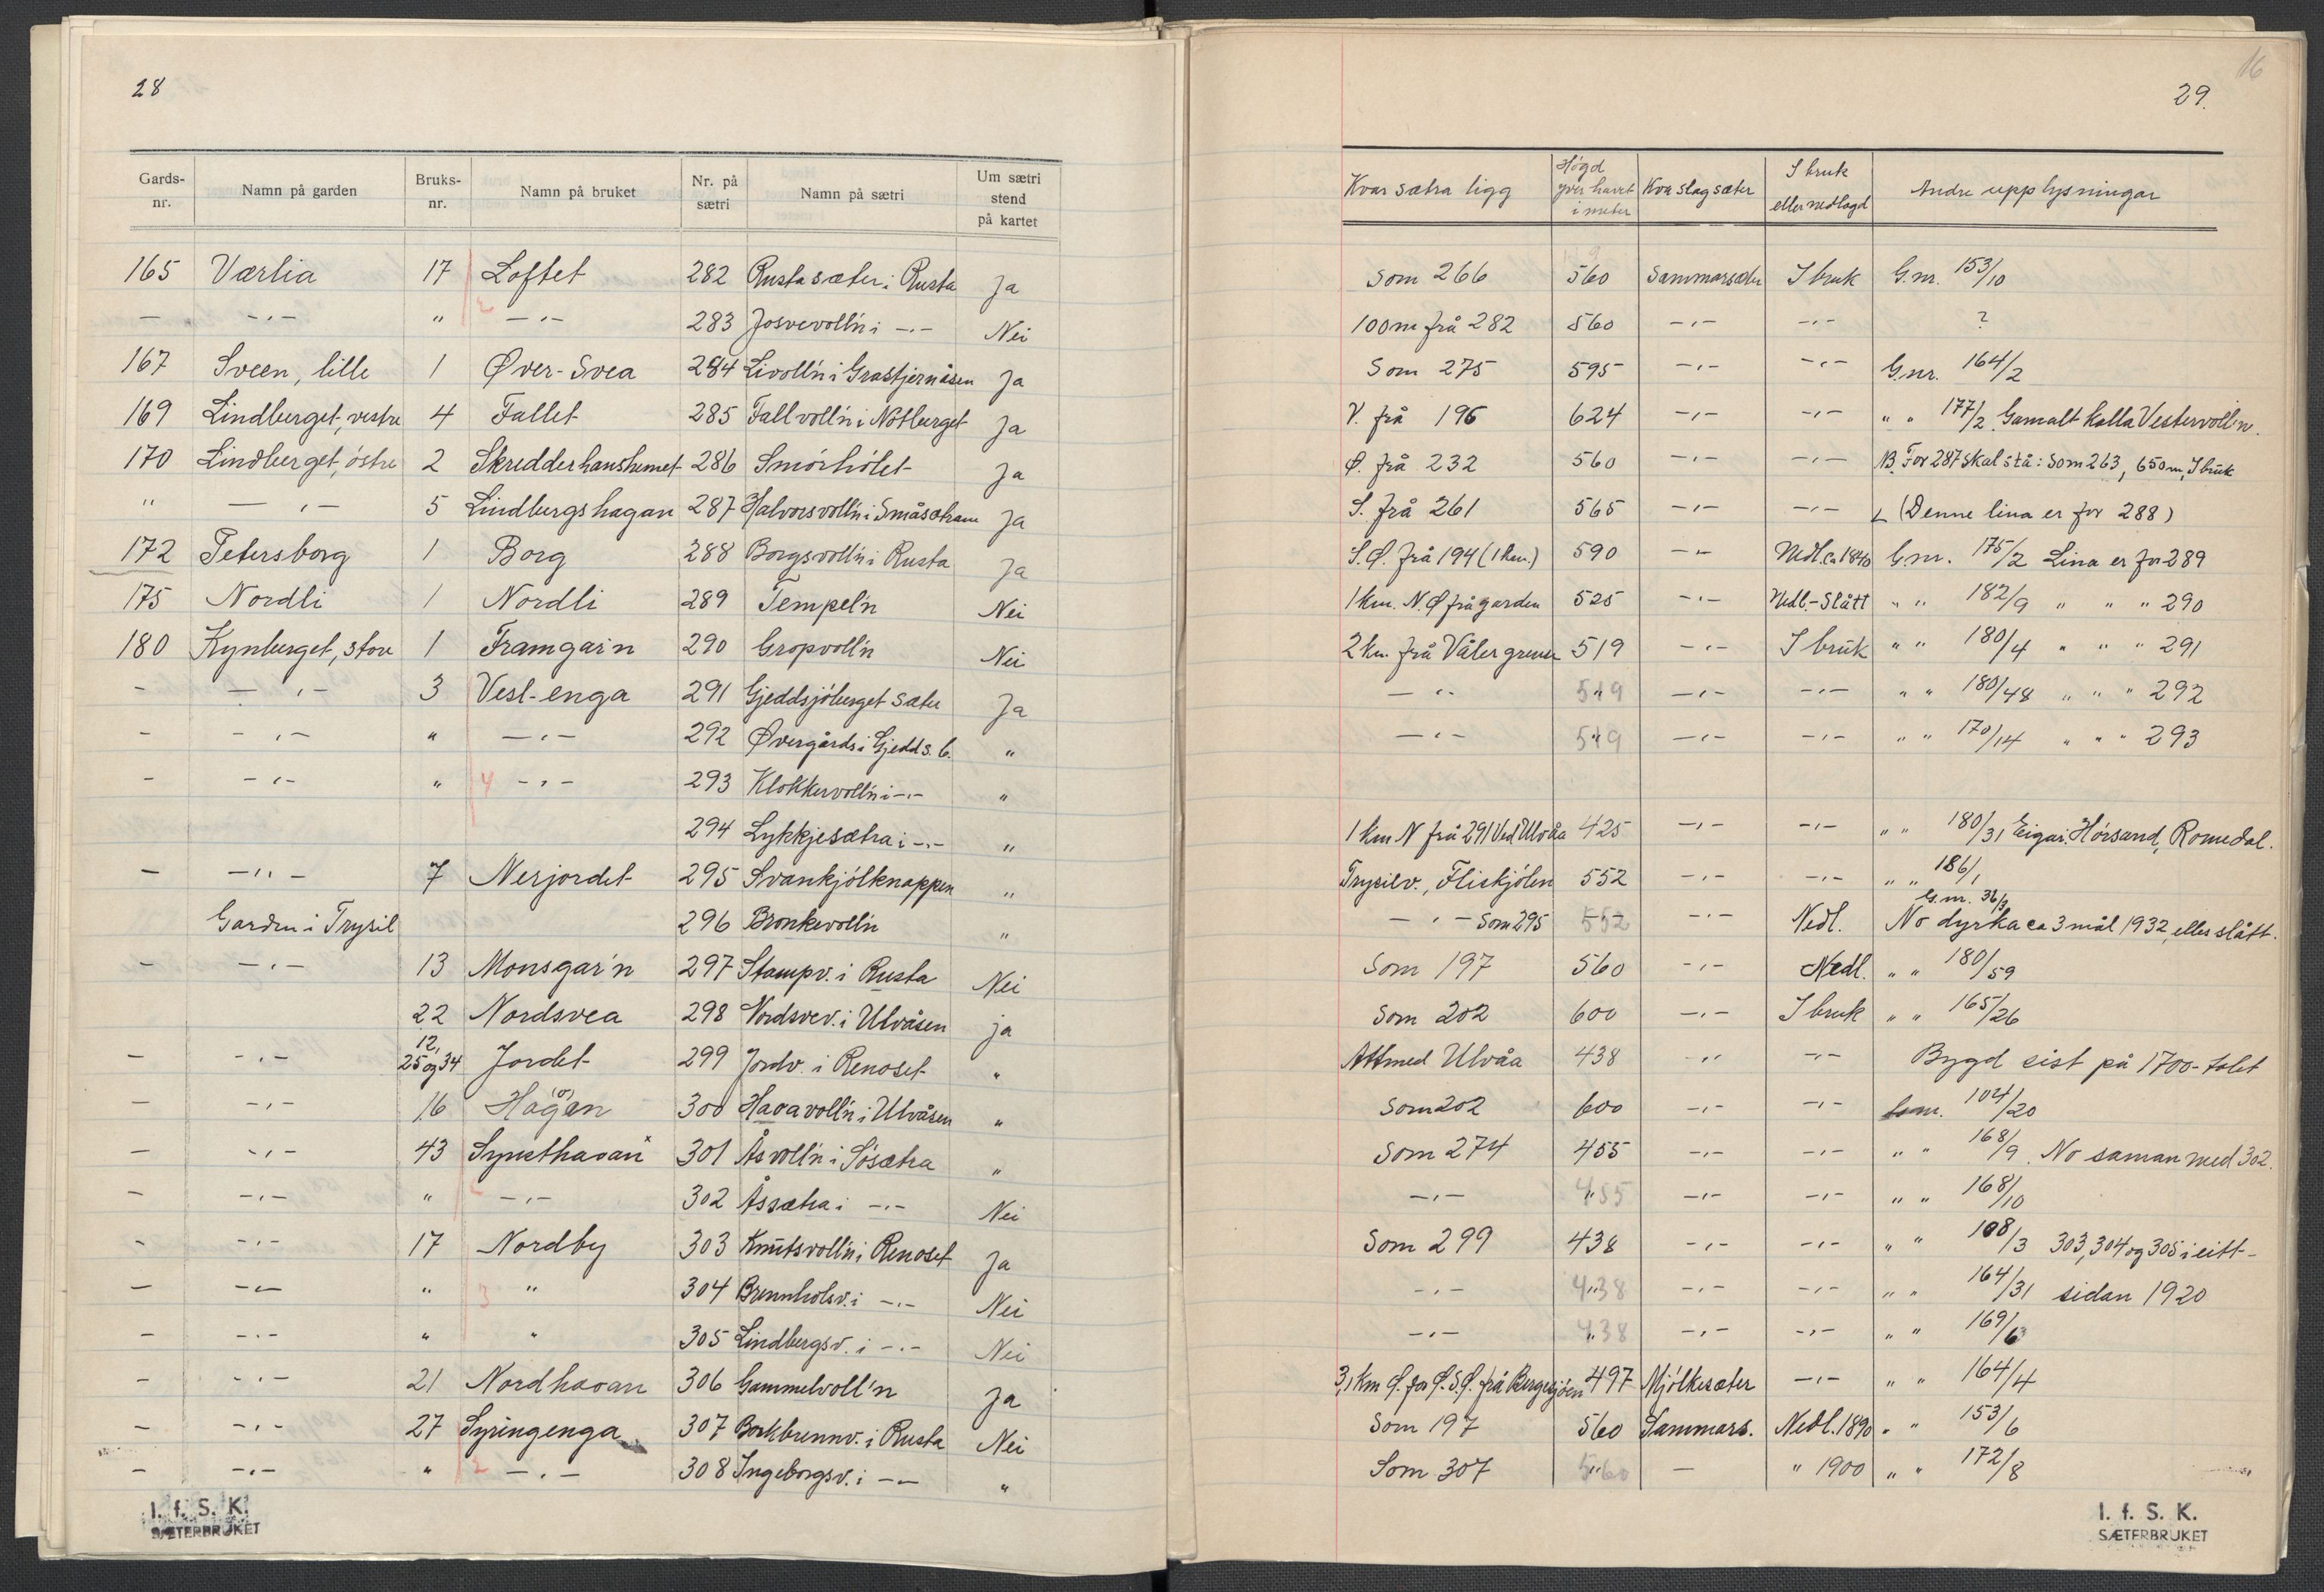 28
Gards-nr. Namn på garden Bruks-nr. Namn på bruket Nr. på sætri Namn på sætri Um sætri stend på kartet
165 Værlia 17 Loftet 282 Rustasæter i Rusta Ja
— -„- " -„- 283 Josvevoll'n i -„- Nei
167 Sveen, lille 1 Øver-Svea 284 Livoll'n i Grastjernåsen Ja
169 Lindberget, vestre 4 Fallet 285 Fallvoll'n i Nötberget Ja
170 Lindberget, östre 2 Skredderhanshemet 286 Smörhölet Ja
" -„- 5 Lindbergshagan 287 Halvorsvoll'n i Småsætrane Ja
172 Petersborg 1 Borg 288 Borgsvoll'n i Rusta Ja
175 Nordli 1 Nordli 289 Tempel'n Nei
180 Kynberget, store 1 Framgar'n 290 Gropvoll'n Nei
- -„- 3 Vesl-enga 291 Gjeddsjöberget sæter Ja
- -„- " -„- 292 Övergårds i Gjedds.b. "
- -„- " 4 -„- 293 Klokkervoll'n i -„- "
294 Lykkjesætra i -„- "
- -„- 7 Nerjordet 295 Svankjölknappen "
Garden i Trysil 296 Bronkevoll'n "
- -„- 13 Monsgar'n 297 Stampv. i Rusta Nei
22 Nordsvea 298 Nordsvev. i Ulvåsen ja
- -„- 12, 25 og 34 Jordet 299 Jordv. i Renoset "
- -„- 16 Hagen (o) 300 Haoavoll'n i Ulvåsen "
- -„- 43 Synsthaoan 301 Åsvoll'n i Sösætra "
- -„- " -„- 302 Åssætra i -„- Nei
- -„- 17 Nordby 303 Knutsvoll'n i Renoset Ja
- -„- " 3 " 304 Brennholsv. i -„- Nei
- -„- " " 305 Lindbergsv. i -„- Nei
- -„- 21 Nordhaoan 306 Gammelvoll'n Ja
- -„- 27 Syringenga 307 Borkbrennv. i Rusta Nei
- -„- " 2 -„- 308 Ingeborgsv. i -„- "
I. f. S. K.
SÆTERBRUKET
16
29.
Kvar sætra ligg Högd yver havet i meter Kva slag sæter I bruk eller nedlagd Andre upplysningar
Som 266 560 Sammarsæter I bruk G.nr. 153/10
100 m frå 282 560 -„- -„- ?
Som 275 595 -„- -„- G.nr. 164/2
V. frå 196 624 -„- -„- " " 177/2 Gamalt kalla Vestervoll'n.
Ø. frå 232 560 -„- -„- NB. For 287 skal stå: Som 263, 650 m, I bruk
S. frå 261 565 -„- -„- (Denne lina er for 288)
S.Ø. frå 194 (1 km.) 590 -„- Nedl. ca 1840 G.nr. 175/2 Lina er for 289
1 km. N.Ø frå garden 525 -„- Nedl.-Slått " " 182/9 " " " 290
2 km. frå Våler grense 519 -„- I bruk " " 180/4 " " " 291
-„- 519 -„- -„- " " 180/48 " " " 292
-„- 519 -„- -„- " " 170/14 " " " 293
1 km N frå 291 Ved Ulvåa 425 -„- -„- " " 180/31 Eigar: Hörsand, Romedal.
Trysilv., Fliskjölen 552 -„- -„- " " 186/1
-„- Som 295 552 -„- Nedl. G.nr. 36/3 No dyrka ca 3 mål 1932, elles slått.
Som 197 560 -„- Nedl. " " 180/59
Som 202 600 -„- I bruk " " 165/26
Attmed Ulvåa 438 -„- -„- Bygd sist på 1700-talet
Som 202 600 -„- -„- G.nr. 104/20
Som 274 455 -„- -„- " " 168/9. No saman med 302.
-„- 455 -„- -„- " " 168/10
Som 299 438 -„- -„- " " 108/3 303, 304 og 305 i eitt-
-„- 438 -„- -„- " " 164/31 sidan 1920
-„- 438 -„- -„- " " 169/6
3,1 km Ø. for Ø.S.Ø. frå Bergesjöen 497 Mjölkesæter -„- " " 164/4
Som 197 560 Sammars. Nedl. 1890 " " 153/6
Som 307 560 — " 1900 " " 172/8
I. f. S. K.
SÆTERBRUKET